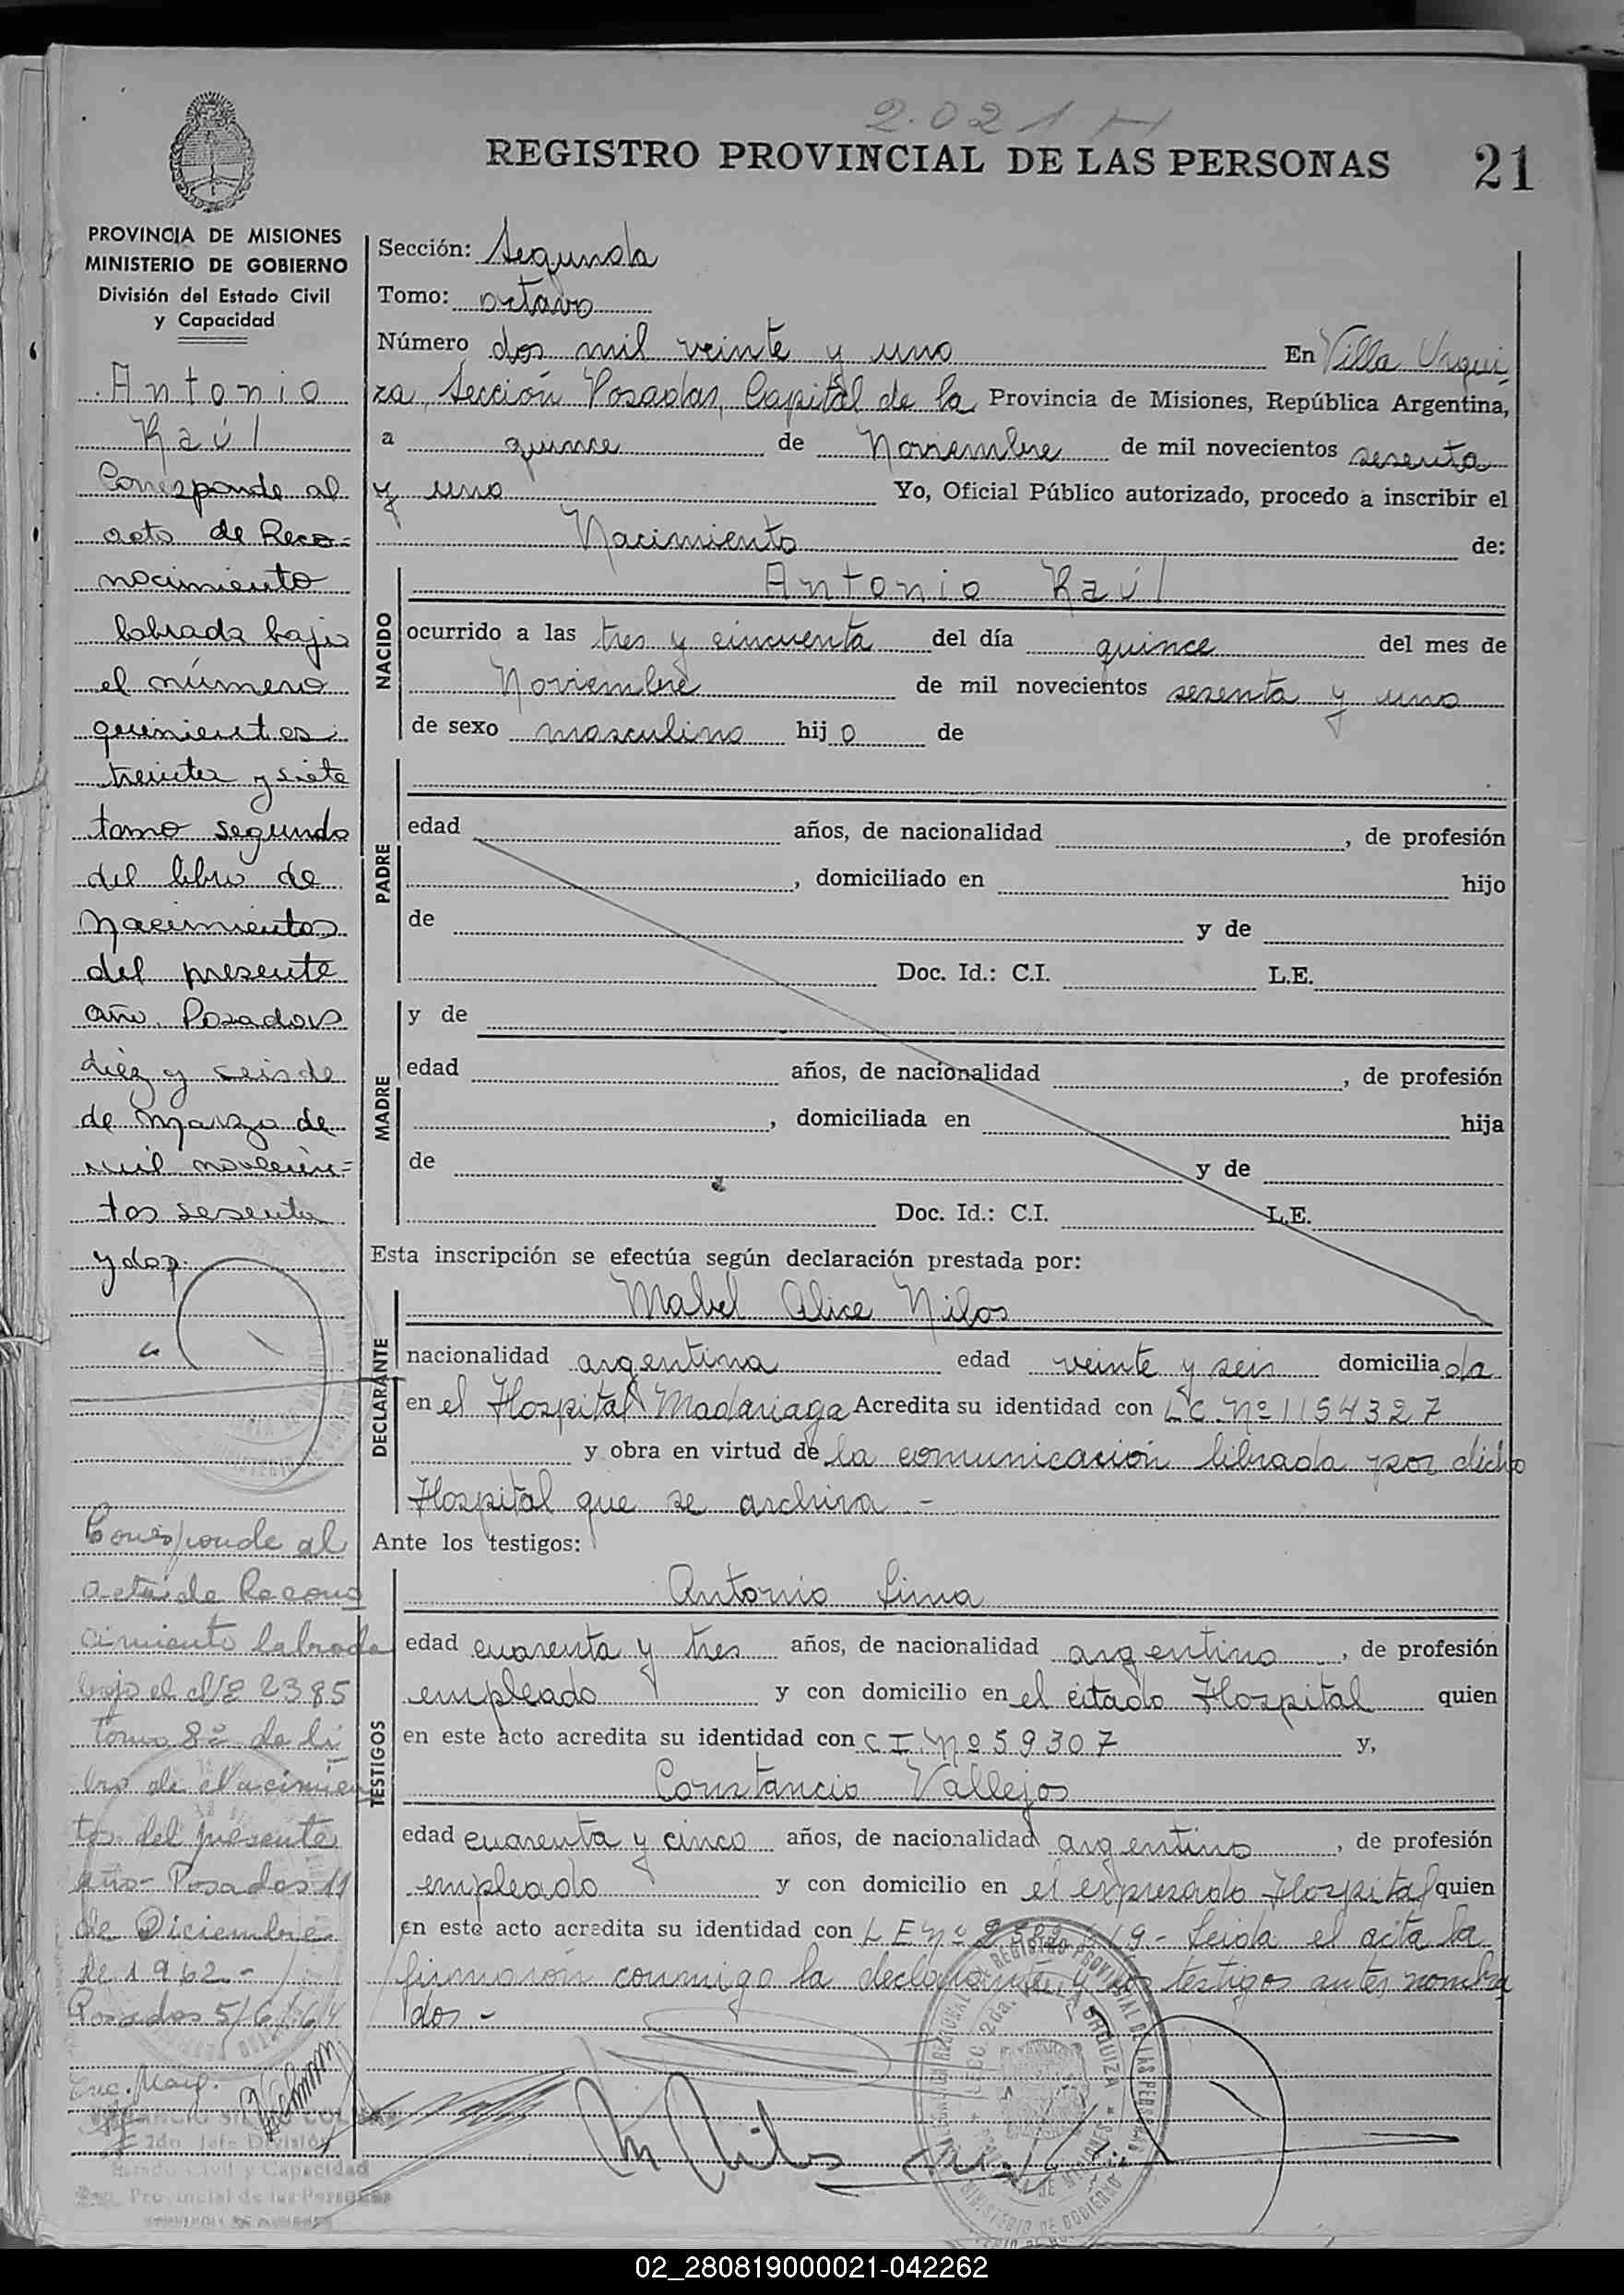 2.021 H
REGISTRO PROVINCIAL DE LAS PERSONAS 21
PROVINCIA DE MISIONES
MINISTERIO DE GOBIERNO
División del Estado Civil
y Capacidad
Antonio
Raúl
Corresponde al
acto de Reco=
nocimiento
labrada bajo
el número
quinientos
treinta y siete
tomo segundo
del libro de
Nacimientos
del presente
año. Posadas
diéz y seis de
de Marzo de
mil novecien=
tos sesenta
y dos.
Corresponde al
acta de Recono
cimiento labrada
bajo el Nº 2385
Tomo 8º de li
bro de Nacimien
tos del presente
año - Posadas 11
de Diciembre
de 1962.-
Posadas 5/6/64
Enc. Marg.
2do. Jefe División
Estado Civil y Capacidad
Reg. Provincial de las Personas
Sección: Segunda
Tomo: octavo
Número dos mil veinte y uno En Villa Urqui
za, Sección Posadas, Capital de la Provincia de Misiones, República Argentina,
a quince de Noviembre de mil novecientos sesenta
y uno Yo, Oficial Público autorizado, procedo a inscribir el
Nacimiento de:
NACIDO
Antonio Raúl
ocurrido a las tres y cincuenta del día quince del mes de
Noviembre de mil novecientos sesenta y uno
de sexo masculino hijo de
PADRE
edad años, de nacionalidad , de profesión
, domiciliado en hijo
de y de
Doc. Id.: C.I. L.E.
MADRE
y de
edad años, de nacionalidad , de profesión
, domiciliada en hija
de y de
Doc. Id.: C.I. L.E.
Esta inscripción se efectúa según declaración prestada por:
DECLARANTE
Mabel Alice Nilos
nacionalidad argentina edad veinte y seis domiciliada
en el Hospital Madariaga Acredita su identidad con L C. Nº 1154327
y obra en virtud de la comunicación librada por dicho
Hospital que se archiva.-
Ante los testigos:
TESTIGOS
Antonio Lima
edad cuarenta y tres años, de nacionalidad argentino , de profesión
empleado y con domicilio en el citado Hospital quien
en este acto acredita su identidad con C I. Nº 59307 y,
Constancio Vallejos
edad cuarenta y cinco años, de nacionalidad argentino , de profesión
empleado y con domicilio en el expresado Hospital quien
en este acto acredita su identidad con L E Nº 19.- Leida el acta la
firmaron conmigo la declarante y los testigos antes nombra
dos.-
02_280819000021-042262